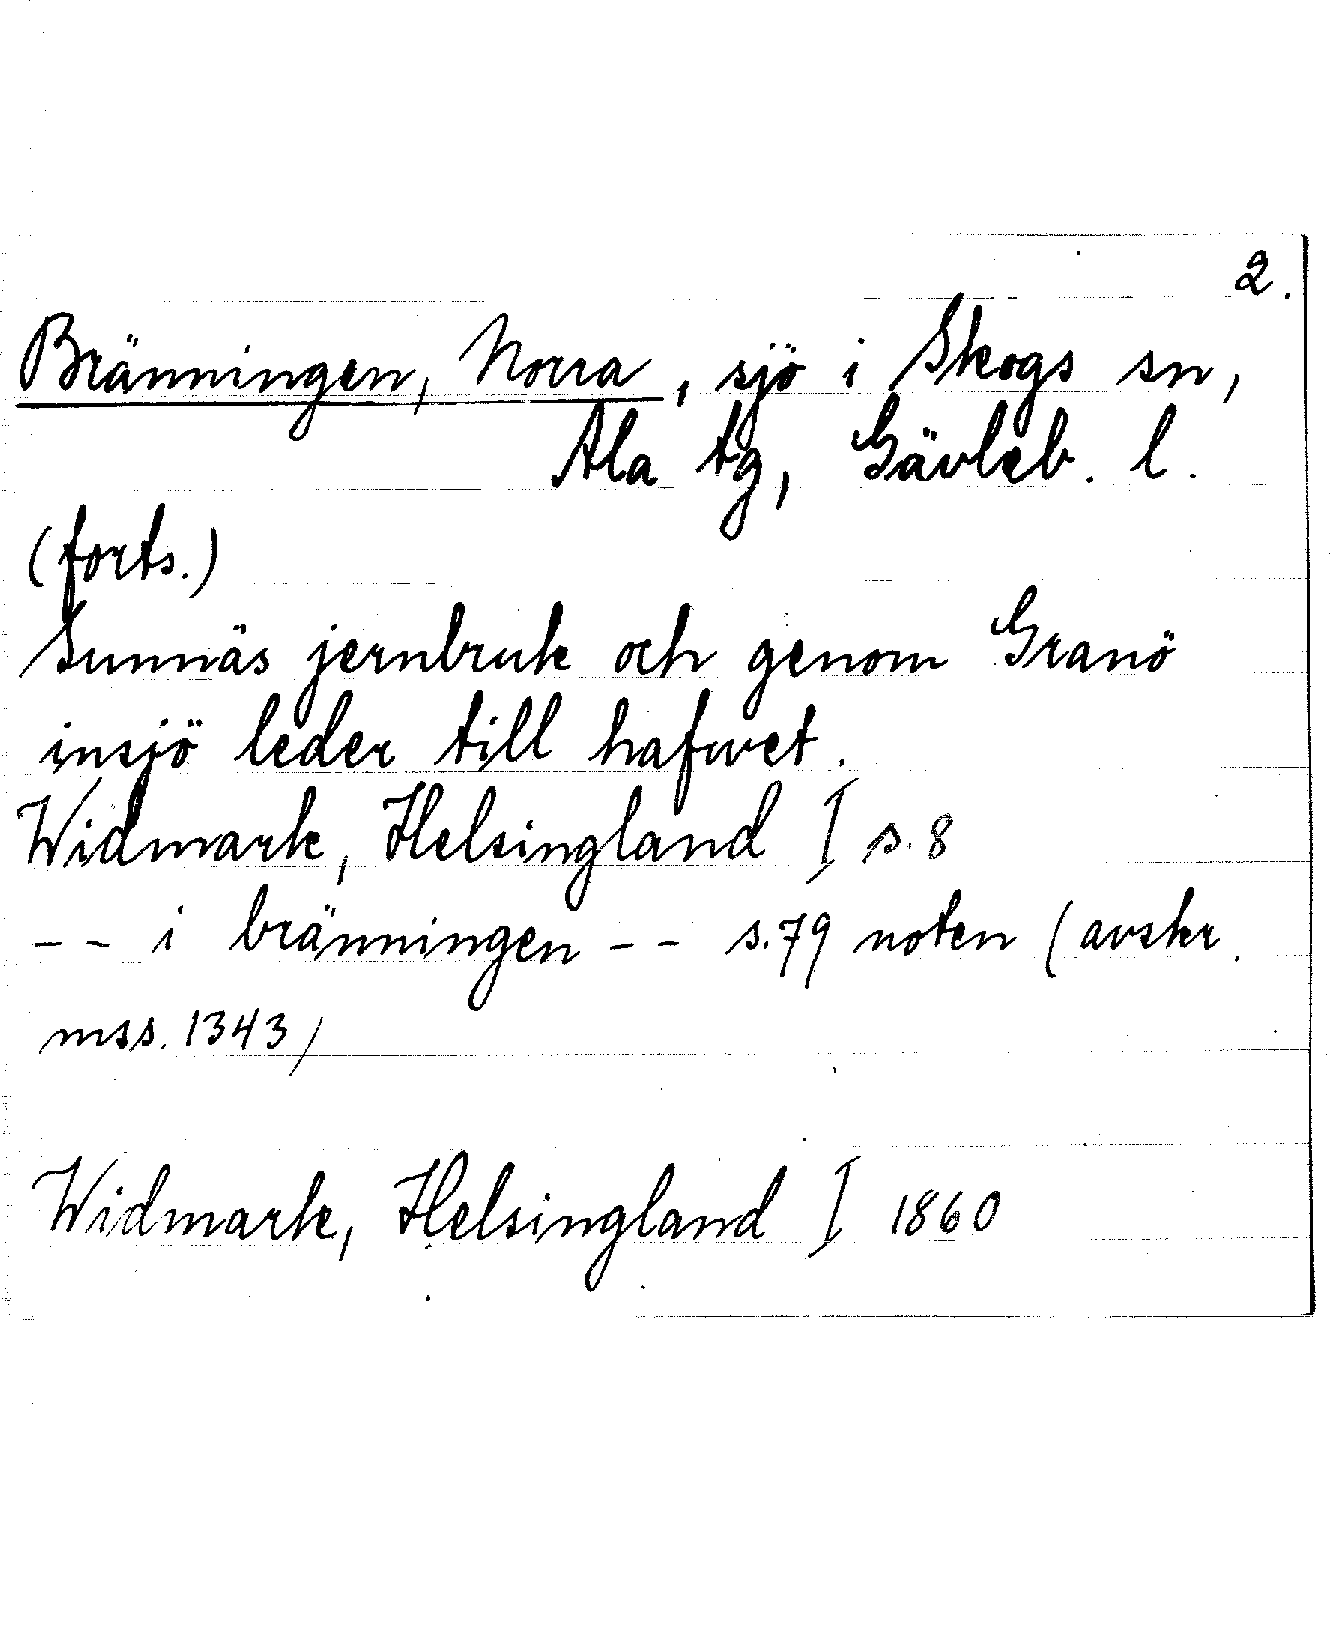 2.
Bränningen, Norra, sjö i Skogs sn,
Ala tg, Gävleb. l.
(forts.)
Sunnäs jernbruk och genom Granö
insjö leder till hafwet.
Widmark, Helsingland I s. 8
-- i bränningen -- s. 79 noten (avskr.
mss. 1343/
Widmark, Helsingland I 1860